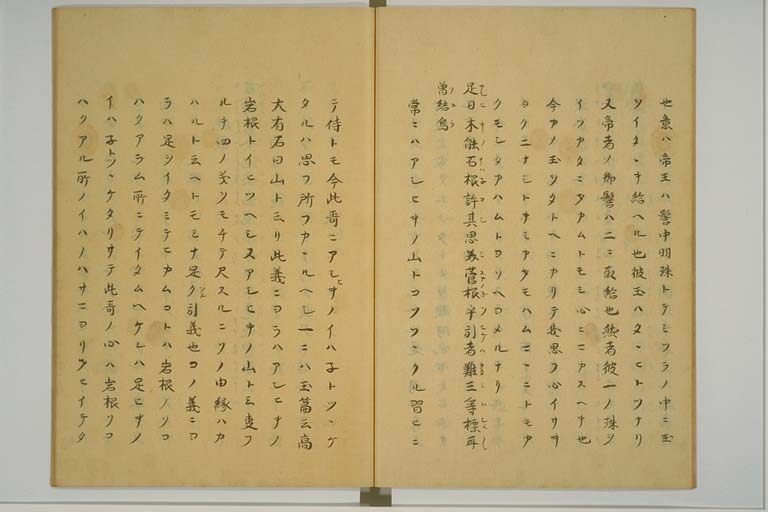 也意ハ帝王ハ髻中明珠トテミツラノ中ニ玉
ツイタヽキ給ヘル也彼玉ハタヽヒトツナリ
又帝者ノ御髻ハ二ニ取給也然者彼一ノ珠ツ
イツカタニヲカムトモミ心ニマカスヘキ也
今カノ玉ツタトヘニカリテ妾思フ心イツサ
ヲクニナシトサミアタモハムマヽニトモカ
クモシタアハムトヨソヘヨメルナリ
足日木能石根許其思美菅根乎引者難三等標耳
曽結鳥
常ニハアシヒキノ山トコソツヽクル習ヒニ
テ侍トモ今此哥ニアシヒキノイハ子トツヽケ
タルハ思フ所フカヽルヘシ一ニハ玉篇云高
大有石曰山トミリ此義ニヨラハアシヒキノ
岩根トイヒツヘシ又アシヒキノ山トミ
ルヲ四ノ義ツモチテ尺スルニソノ由縁ハカ
ハルトミヘトモミナ足ク引義也コノ義ニヨ
ラハ足シイタミテヒカムコトハ岩根ノソコ
ハクアラム所ニテイタムヘケレハ足ヒキノ
イハ子トツヽケタリサテ此哥ノ心ハ岩根ソコ
ハクアル所ノイハノハサマニヨリヲヒイテタ